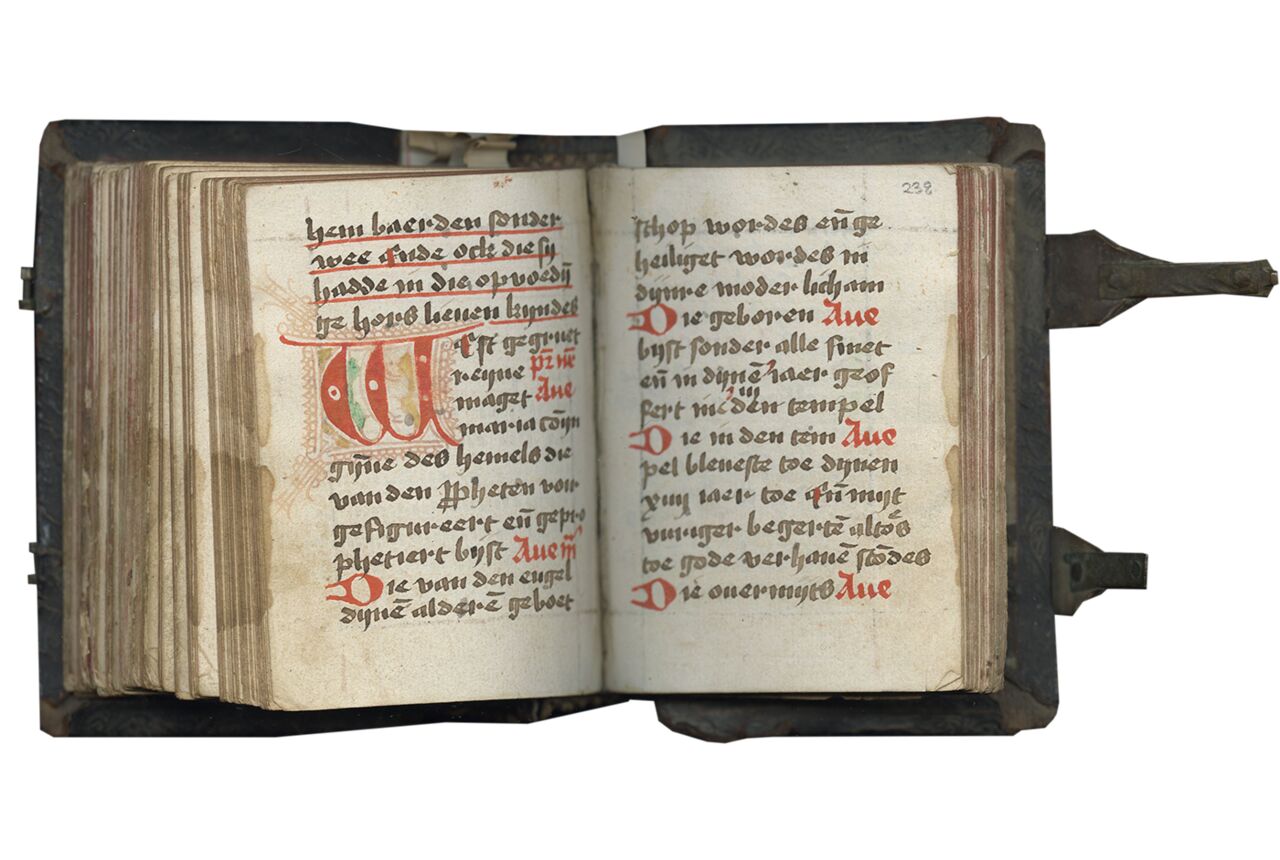 hem baerden sonder
wee ende ock die sy
hadde in die opvoedī
ge hors lieuen kyndes
West gegruet
reyne pr̄ nr̄
maget Aue
maria cōyn
gȳne des hemels die
van den ꝓpheten voir
gefigureert en̄ gepro
phetiert byst Aue m̄
Die van den engel
dynē alderē geboet
238
schop wordes en̄ ge
heiliget wordes in
dynre moder licham
Die geboren Aue
byst sonder alle smet
en̄ in dynē iaer geof
fert in den tempel
Die in den tem Aue
pel bleueste toe dynen
xiiij iaer toe en̄ myt
vuriger begertē altōs
toe gode verhauē stōdes
Die ouermyts Aue